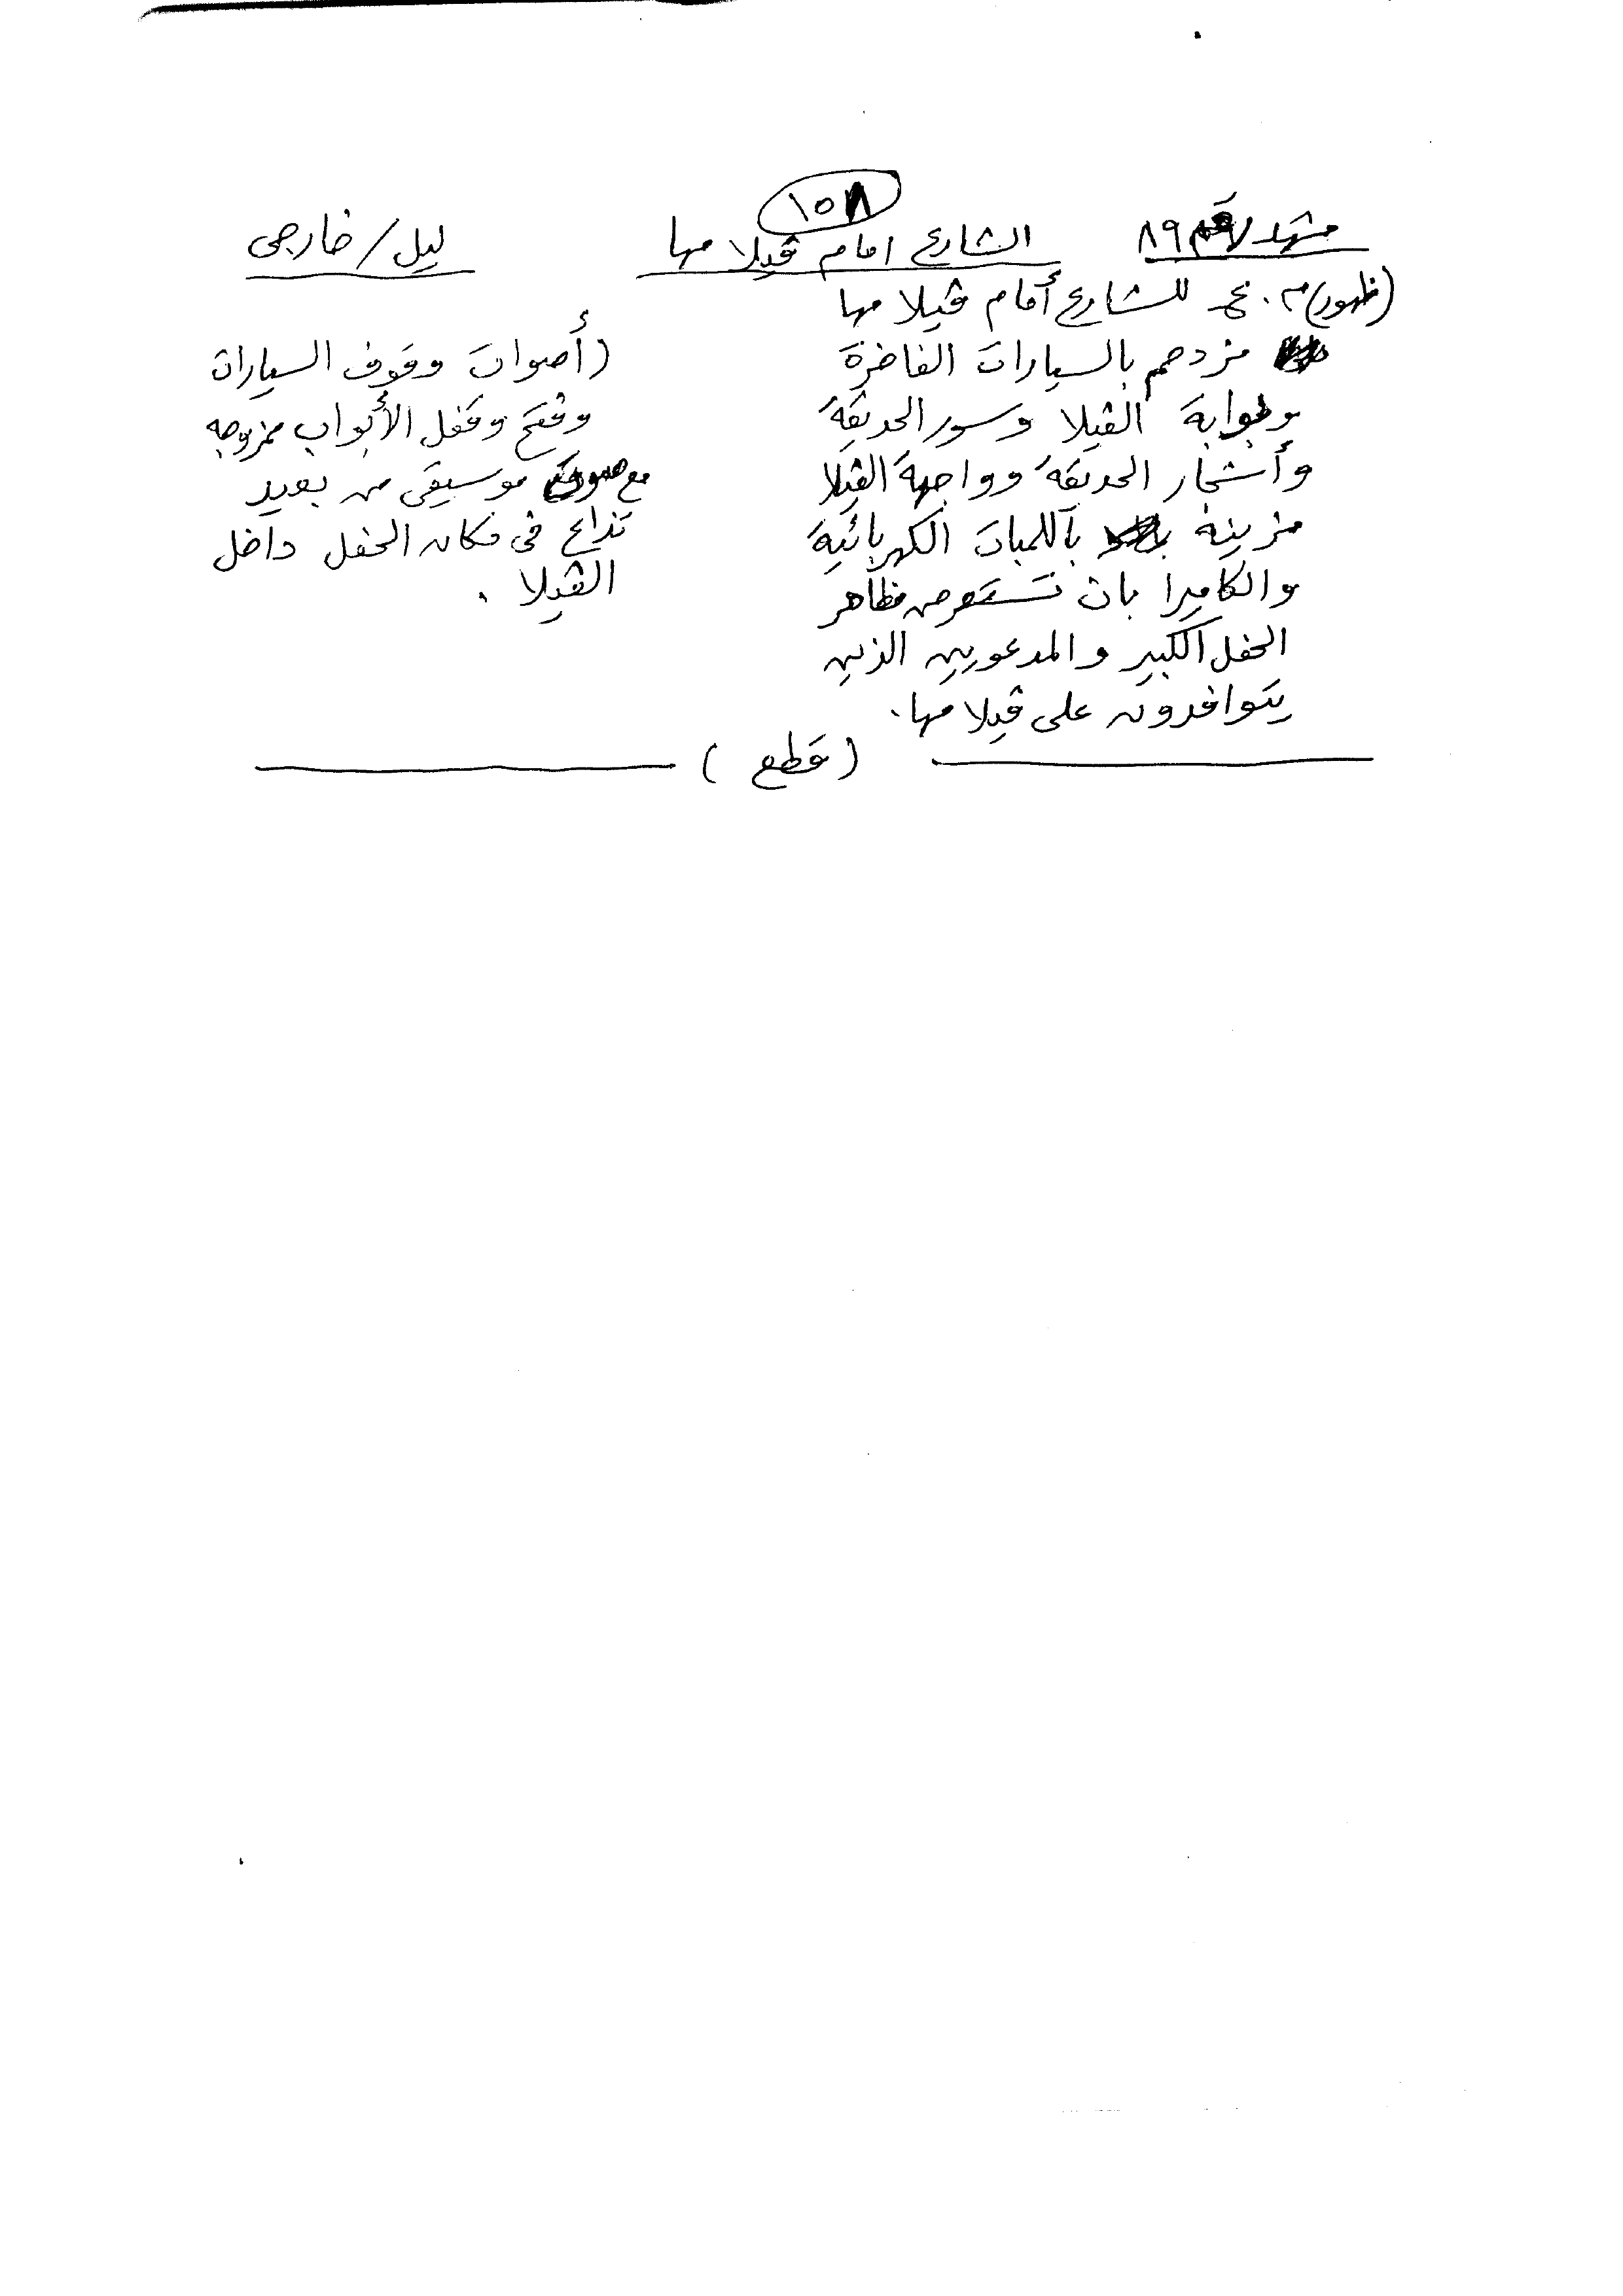 ١٥٨
مشهد رقم ٨٩ الشارع امام ڤيلا مها ليل/خارجى
(ظهور) م. عج للشارع أمام ڤيلا مها
مزدحم بالسيارات الفاخرة
وبوابة الڤيلا وسور الحديقة
وأشجار الحديقة وواجهة الڤيلا
مزينة باللمبات الكهربائية
والكاميرا بان تستعرض مظاهر
الحفل الكبير والمدعويين الذين
يتوافدون على ڤيلا مها.
(أصوات وقوف السيارات
وفتح وقفل الأبواب ممزوجه
مع صوت موسيقى من بعيد
تذاع فى مكان الحفل داخل
الڤيلا .
(قطع)